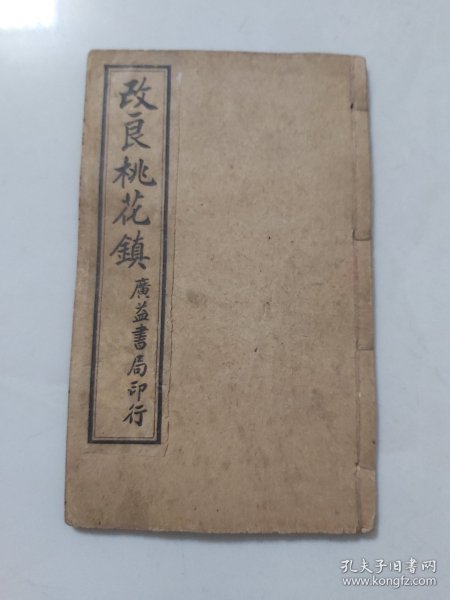 改良桃花鎮
廣益書局印行
孔夫子旧书网
www.kongfz.com